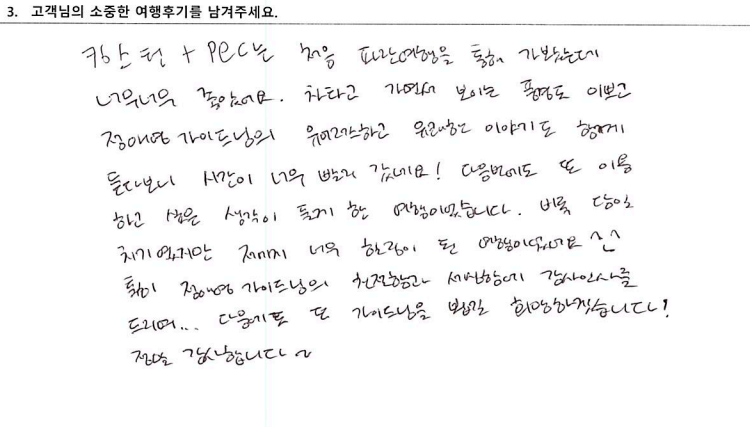 3. 고객님의 소중한 여행후기를 남겨주세요.
킹스턴 + PEC는 처음 파란여행을 통해 가봤는데
너무너무 좋았어요. 차타고 가면서 보이는 풍경도 이쁘고
정애영 가이드님의 유머러스하고 유쾌한 이야기도 함께
듣다보니 시간이 너무 빨리 갔네요! 다음번에도 또 이용
하고 싶은 생각이 들게 한 여행이었습니다. 비록 당일
치기였지만 저에게 너무 힐링이 된 여행이었어요 ^^
특히 정애영 가이드님의 친절함과 세심함에 감사인사를
드리며... 다음에도 또 가이드님을 뵙길 희망하겠습니다!
정말 감사합니다~